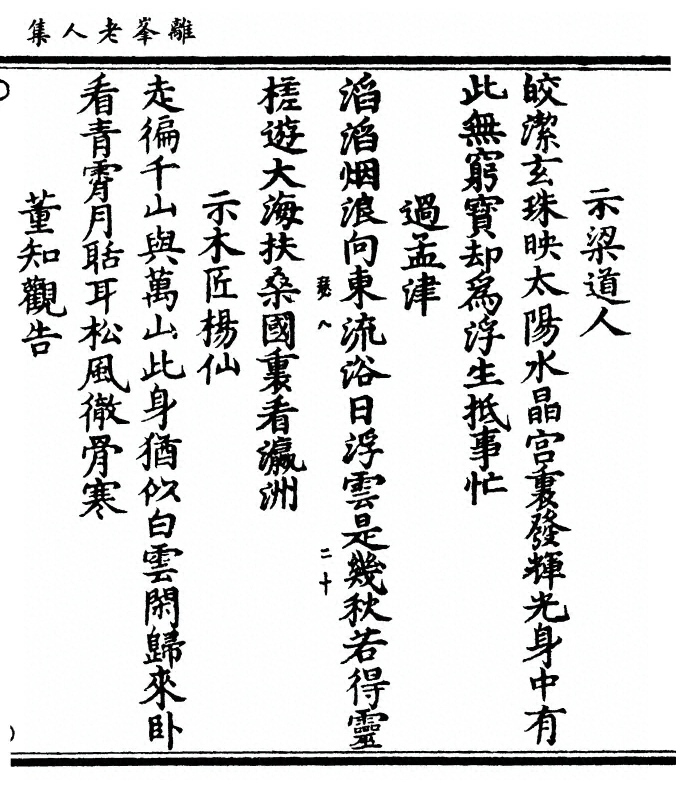 離峯老人集
示梁道人
皎潔玄珠映太陽水晶宮裏發輝光身中有
此無窮寶却為浮生抵事忙
過孟津
滔滔烟浪向東流浴日浮雲是幾秋若得靈
二十
槎遊大海扶桑國裏看瀛洲
示木匠楊仙
走徧千山與萬山此身猶似白雲閑歸來卧
看青霄月聒耳松風徹骨寒
董知觀告